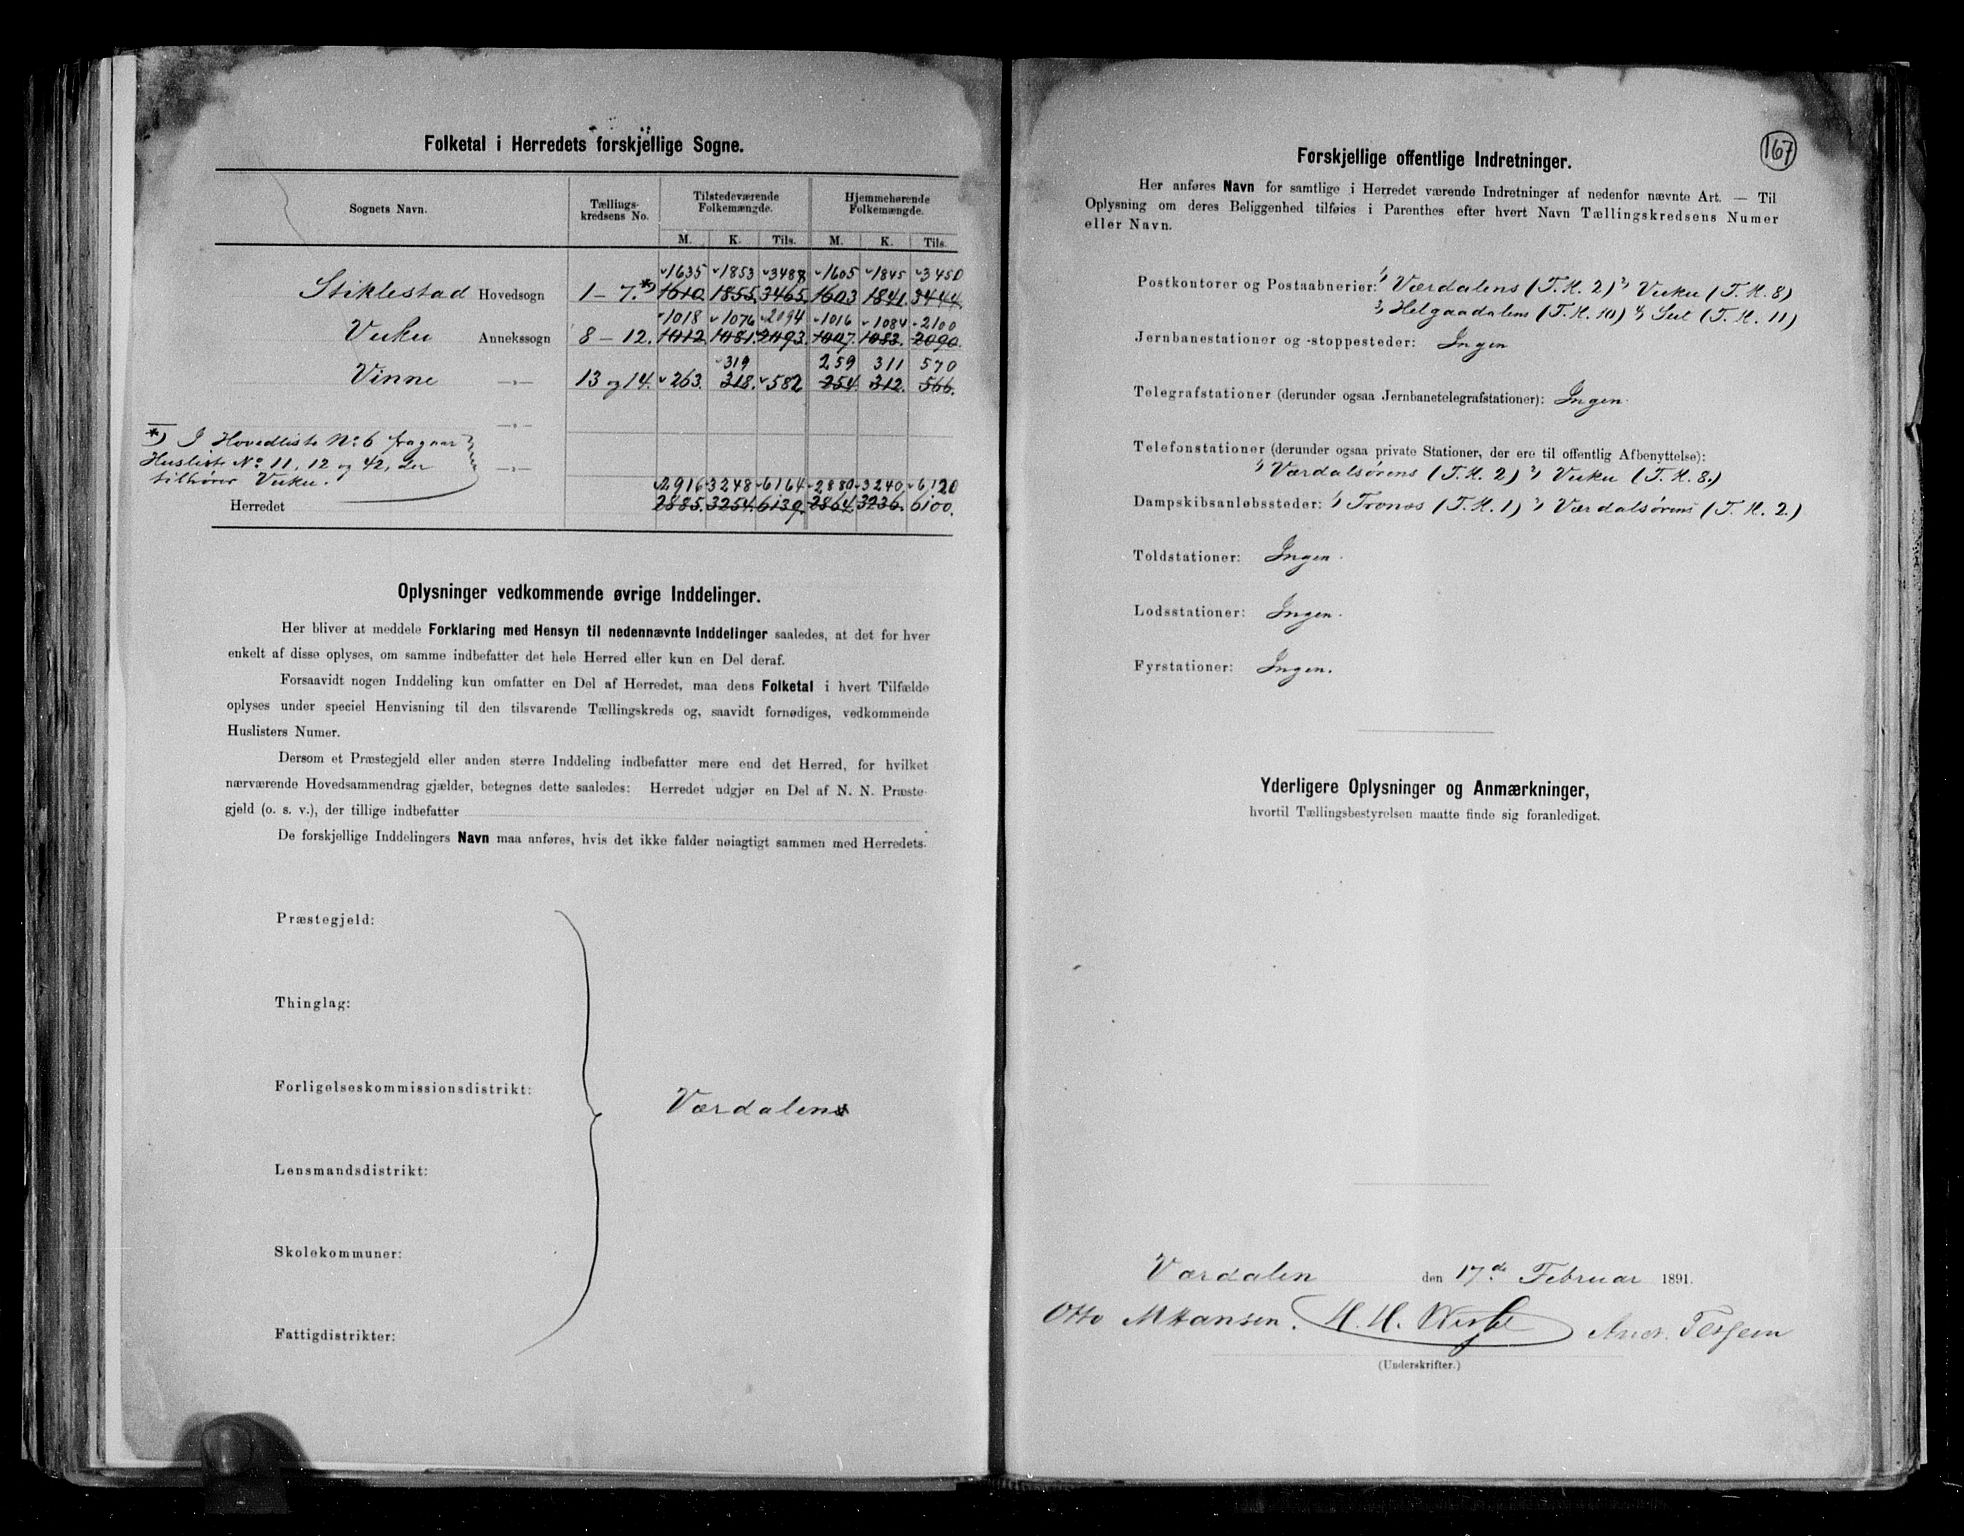 Folketal i Herredets forskjellige Sogne.
Sognets Navn.
Tællings-
kredsens No.
Tilstedeværende
Folkemængde.
Hjemmehørende
Folkemængde.
M. K. Tils. M. K. Tils.
1635 1853 3488 1605 1845 3450
Stiklestad Hovedsogn 1–7.*) 1610. 1855. 3465. 1603 1841. 3444.
1018 1076 2094 1016 1084 2100
Vuku Annekssogn 8–12. 1012. 1081. 2093. 1007. 1083. 2090.
319 259 311 570
Vinne —„— 13 og 14. 263. 318. 582 254. 312. 566.
—„—
*) I Hovedliste No 6 fragaar
Husliste No 11, 12 og 42, der
tilhører Vuku.
—„—
2916 3248 6164 2880 3240 6120
Herredet 2885. 3254. 6139. 2864. 3236. 6100.
Oplysninger vedkommende øvrige Inddelinger.
Her bliver at meddele Forklaring med Hensyn til nedennævnte Inddelinger saaledes, at det for hver
enkelt af disse oplyses, om samme indbefatter det hele Herred eller kun en Del deraf.
Forsaavidt nogen Inddeling kun omfatter en Del af Herredet, maa dens Folketal i hvert Tilfælde
oplyses under speciel Henvisning til den tilsvarende Tællingskreds og, saavidt fornødiges, vedkommende
Huslisters Numer.
Dersom et Præstegjeld eller anden større Inddeling indbefatter mere end det Herred, for hvilket
nærværende Hovedsammendrag gjælder, betegnes dette saaledes: Herredet udgjør en Del af N. N. Præste-
gjeld (o. s. v.), der tillige indbefatter
De forskjellige Inddelingers Navn maa anføres, hvis det ikke falder nøiagtigt sammen med Herredets.
Præstegjeld:
Thinglag:
Forligelseskommissionsdistrikt:
Værdalens
Lensmandsdistrikt:
Skolekommuner:
Fattigdistrikter:
167
Forskjellige offentlige Indretninger.
Her anføres Navn for samtlige i Herredet værende Indretninger af nedenfor nævnte Art. — Til
Oplysning om deres Beliggenhed tilføies i Parenthes efter hvert Navn Tællingskredsens Numer
eller Navn.
Postkontorer og Postaabnerier: 1) Værdalens (T. K. 2) 2) Vuku (T. K. 8)
3) Helgaadalens (T. K. 10) 4) Sul (T. K. 11)
Jernbanestationer og -stoppesteder: Ingen
Telegrafstationer (derunder ogsaa Jernbanetelegrafstationer): Ingen.
Telefonstationer (derunder ogsaa private Stationer, der ere til offentlig Afbenyttelse):
1) Værdalsørens (T. K. 2) 2) Vuku (T. K. 8.)
Dampskibsanløbssteder: 1) Tronæs (T. K. 1) 2) Værdalsørens (T. K. 2.)
Toldstationer: Ingen.
Lodsstationer: Ingen.
Fyrstationer: Ingen.
Yderligere Oplysninger og Anmærkninger,
hvortil Tællingsbestyrelsen maatte finde sig foranlediget.
Værdalen den 17de Februar 1891.
Otto M Hansen. H. H. Andr. Tessem
(Underskrifter.)